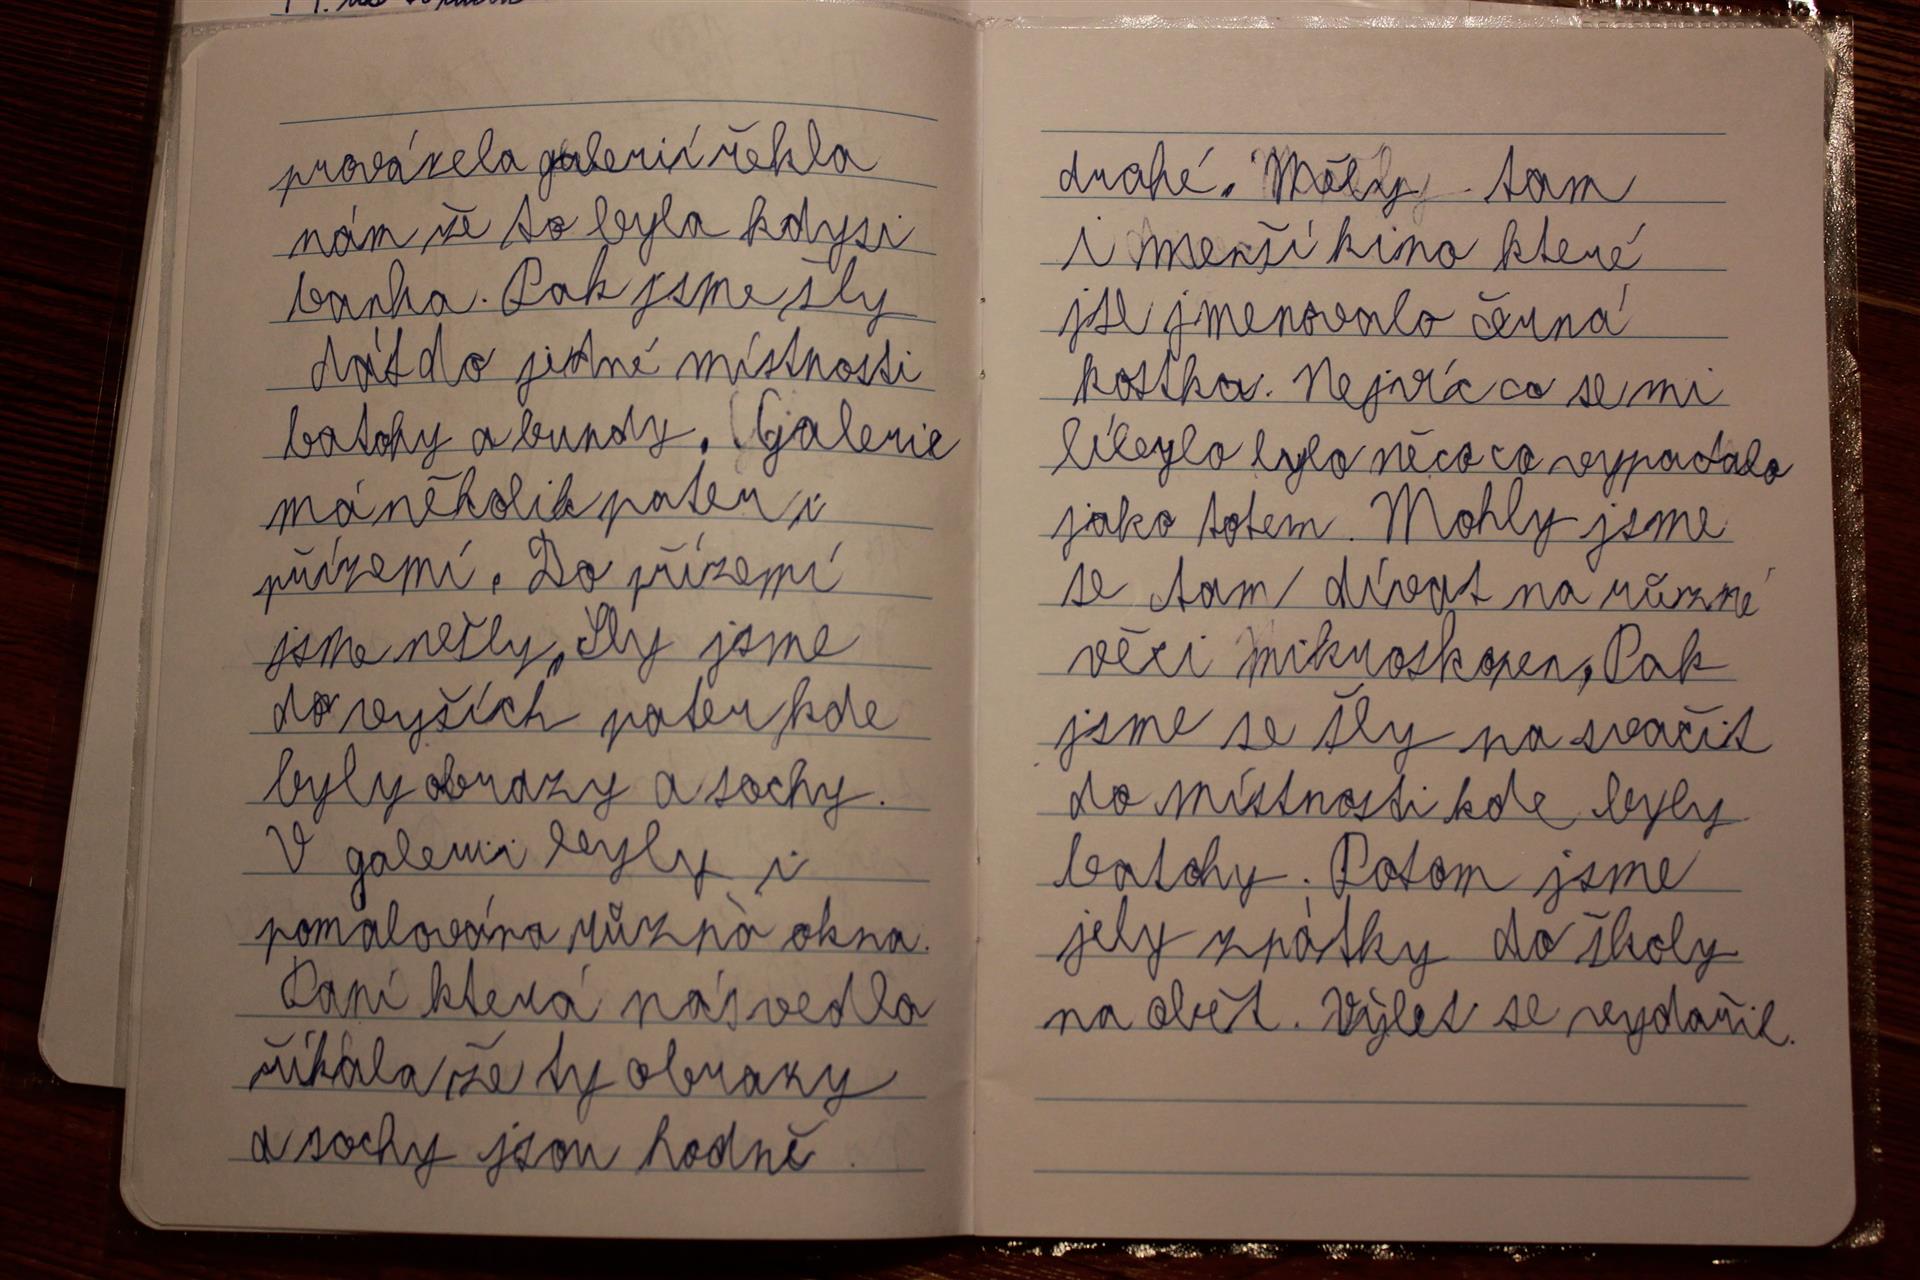 provázela galerií řekla
nám že to byla kdysi
banka. Pak jsme šly
dát do jedné místnosti
batohy a bundy. Galerie
má několik pater i
přízemí. Do přízemí
jsme nešly, Šly jsme
do vyších pater kde
byly obrazy a sochy.
V galerii byly i
pomalována různá okna.
Paní která nás vedla
říkala že ty obrazy
a sochy jsou hodně
drahé. Měly tam
i menší kino které
jse jmenovalo černá
kostka. Nejvíc co se mi
líbylo bylo něco co vypadalo
jako totem. Mohly jsme
se tam dívat na různé
věci mikroskopem, Pak
jsme se šly na svačit
do místnosti kde byly
batohy. Potom jsme
jely zpátky do školy
na obět. Výlet se vydařil.